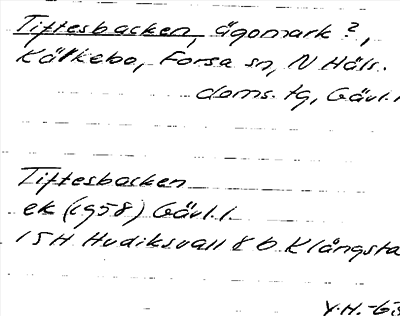 Tiftesbacken, ägomark?,
Kälkebo, Forsa sn, N Häls.
doms. tg, Gävl. l
Tiftesbacken
ek (1958) Gävl. l.
15H Hudiksvall 8 b Klångsta
Y.H.-63